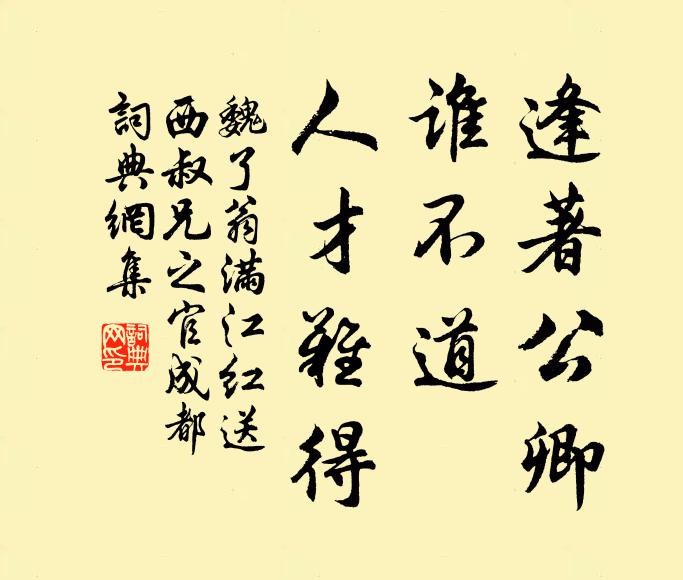 逢著公卿
誰不道
人才難得
魏了翁滿江紅送
西叔兄之官成都
詞典網集
詞典
网印